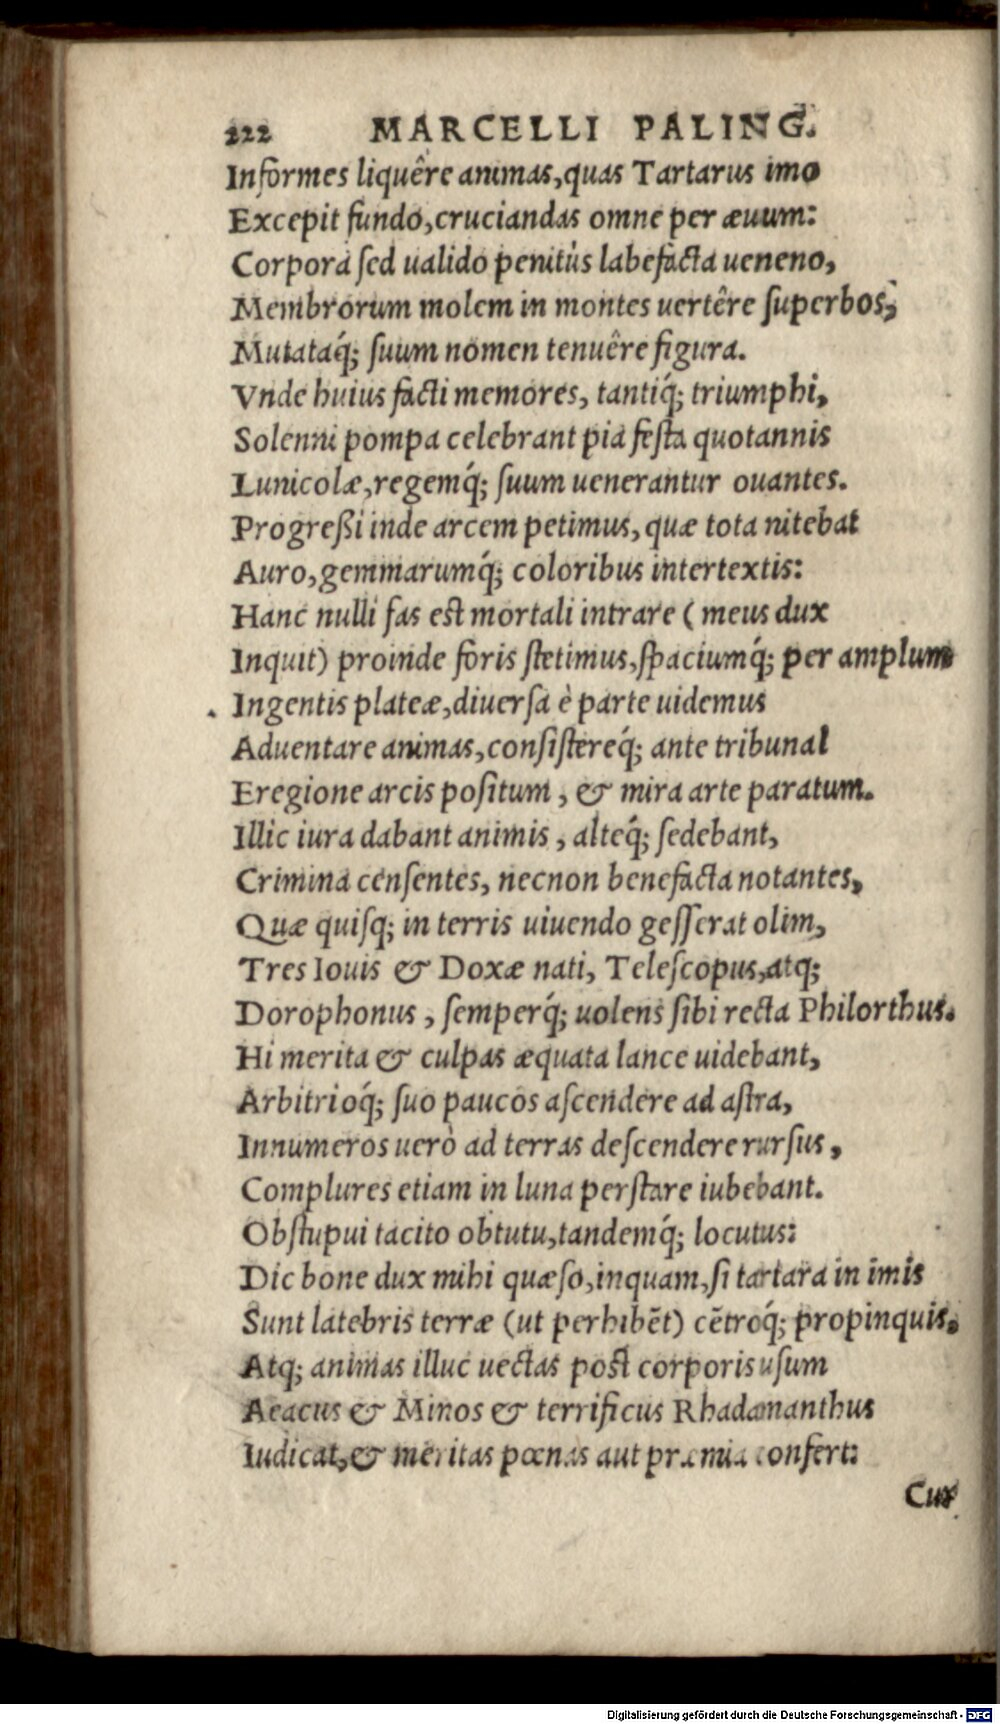 222 MARCELLI PALING.
Informes liquêre animas, quas Tartarus imo
Excepit fundo, cruciandas omne per æuum:
Corpora sed ualido penitùs labefacta ueneno,
Membrorum molem in montes uertêre superbos,
Mutataq́; suum nomen tenuêre figura.
Vnde huius facti memores, tantiq́; triumphi,
Solenni pompa celebrant pia festa quotannis
Lunicolæ, regemq́; suum uenerantur ouantes.
Progreßi inde arcem petimus, quæ tota nitebat
Auro, gemmarumq́; coloribus intertextis:
Hanc nulli fas est mortali intrare (meus dux
Inquit) proinde foris stetimus, spaciumq́; per amplum
Ingentis plateæ, diuersa è parte uidemus
Aduentare animas, consistereq́; ante tribunal
Eregione arcis positum, & mira arte paratum.
Illic iura dabant animis, alteq́; sedebant,
Crimina censentes, necnon benefacta notantes,
Quæ quisq; in terris uiuendo gesserat olim,
Tres Iouis & Doxæ nati, Telescopus, atq;
Dorophonus, semperq́; uolens sibi recta Philorthus.
Hi merita & culpas æquata lance uidebant,
Arbitrioq́; suo paucos ascendere ad astra,
Innumeros uerò ad terras descendere rursus,
Complures etiam in luna perstare iubebant.
Obstupui tacito obtutu, tandemq́; locutus:
Dic bone dux mihi quæso, inquam, si tartara in imis
Sunt latebris terræ (ut perhibẽt) cẽtroq́; propinquis,
Atq; animas illuc uectas post corporis usum
Aeacus & Minos & terrificus Rhadamanthus
Iudicat, & meritas pœnas aut præmia confert:
Cur
Digitalisierung gefördert durch die Deutsche Forschungsgemeinschaft - DFG